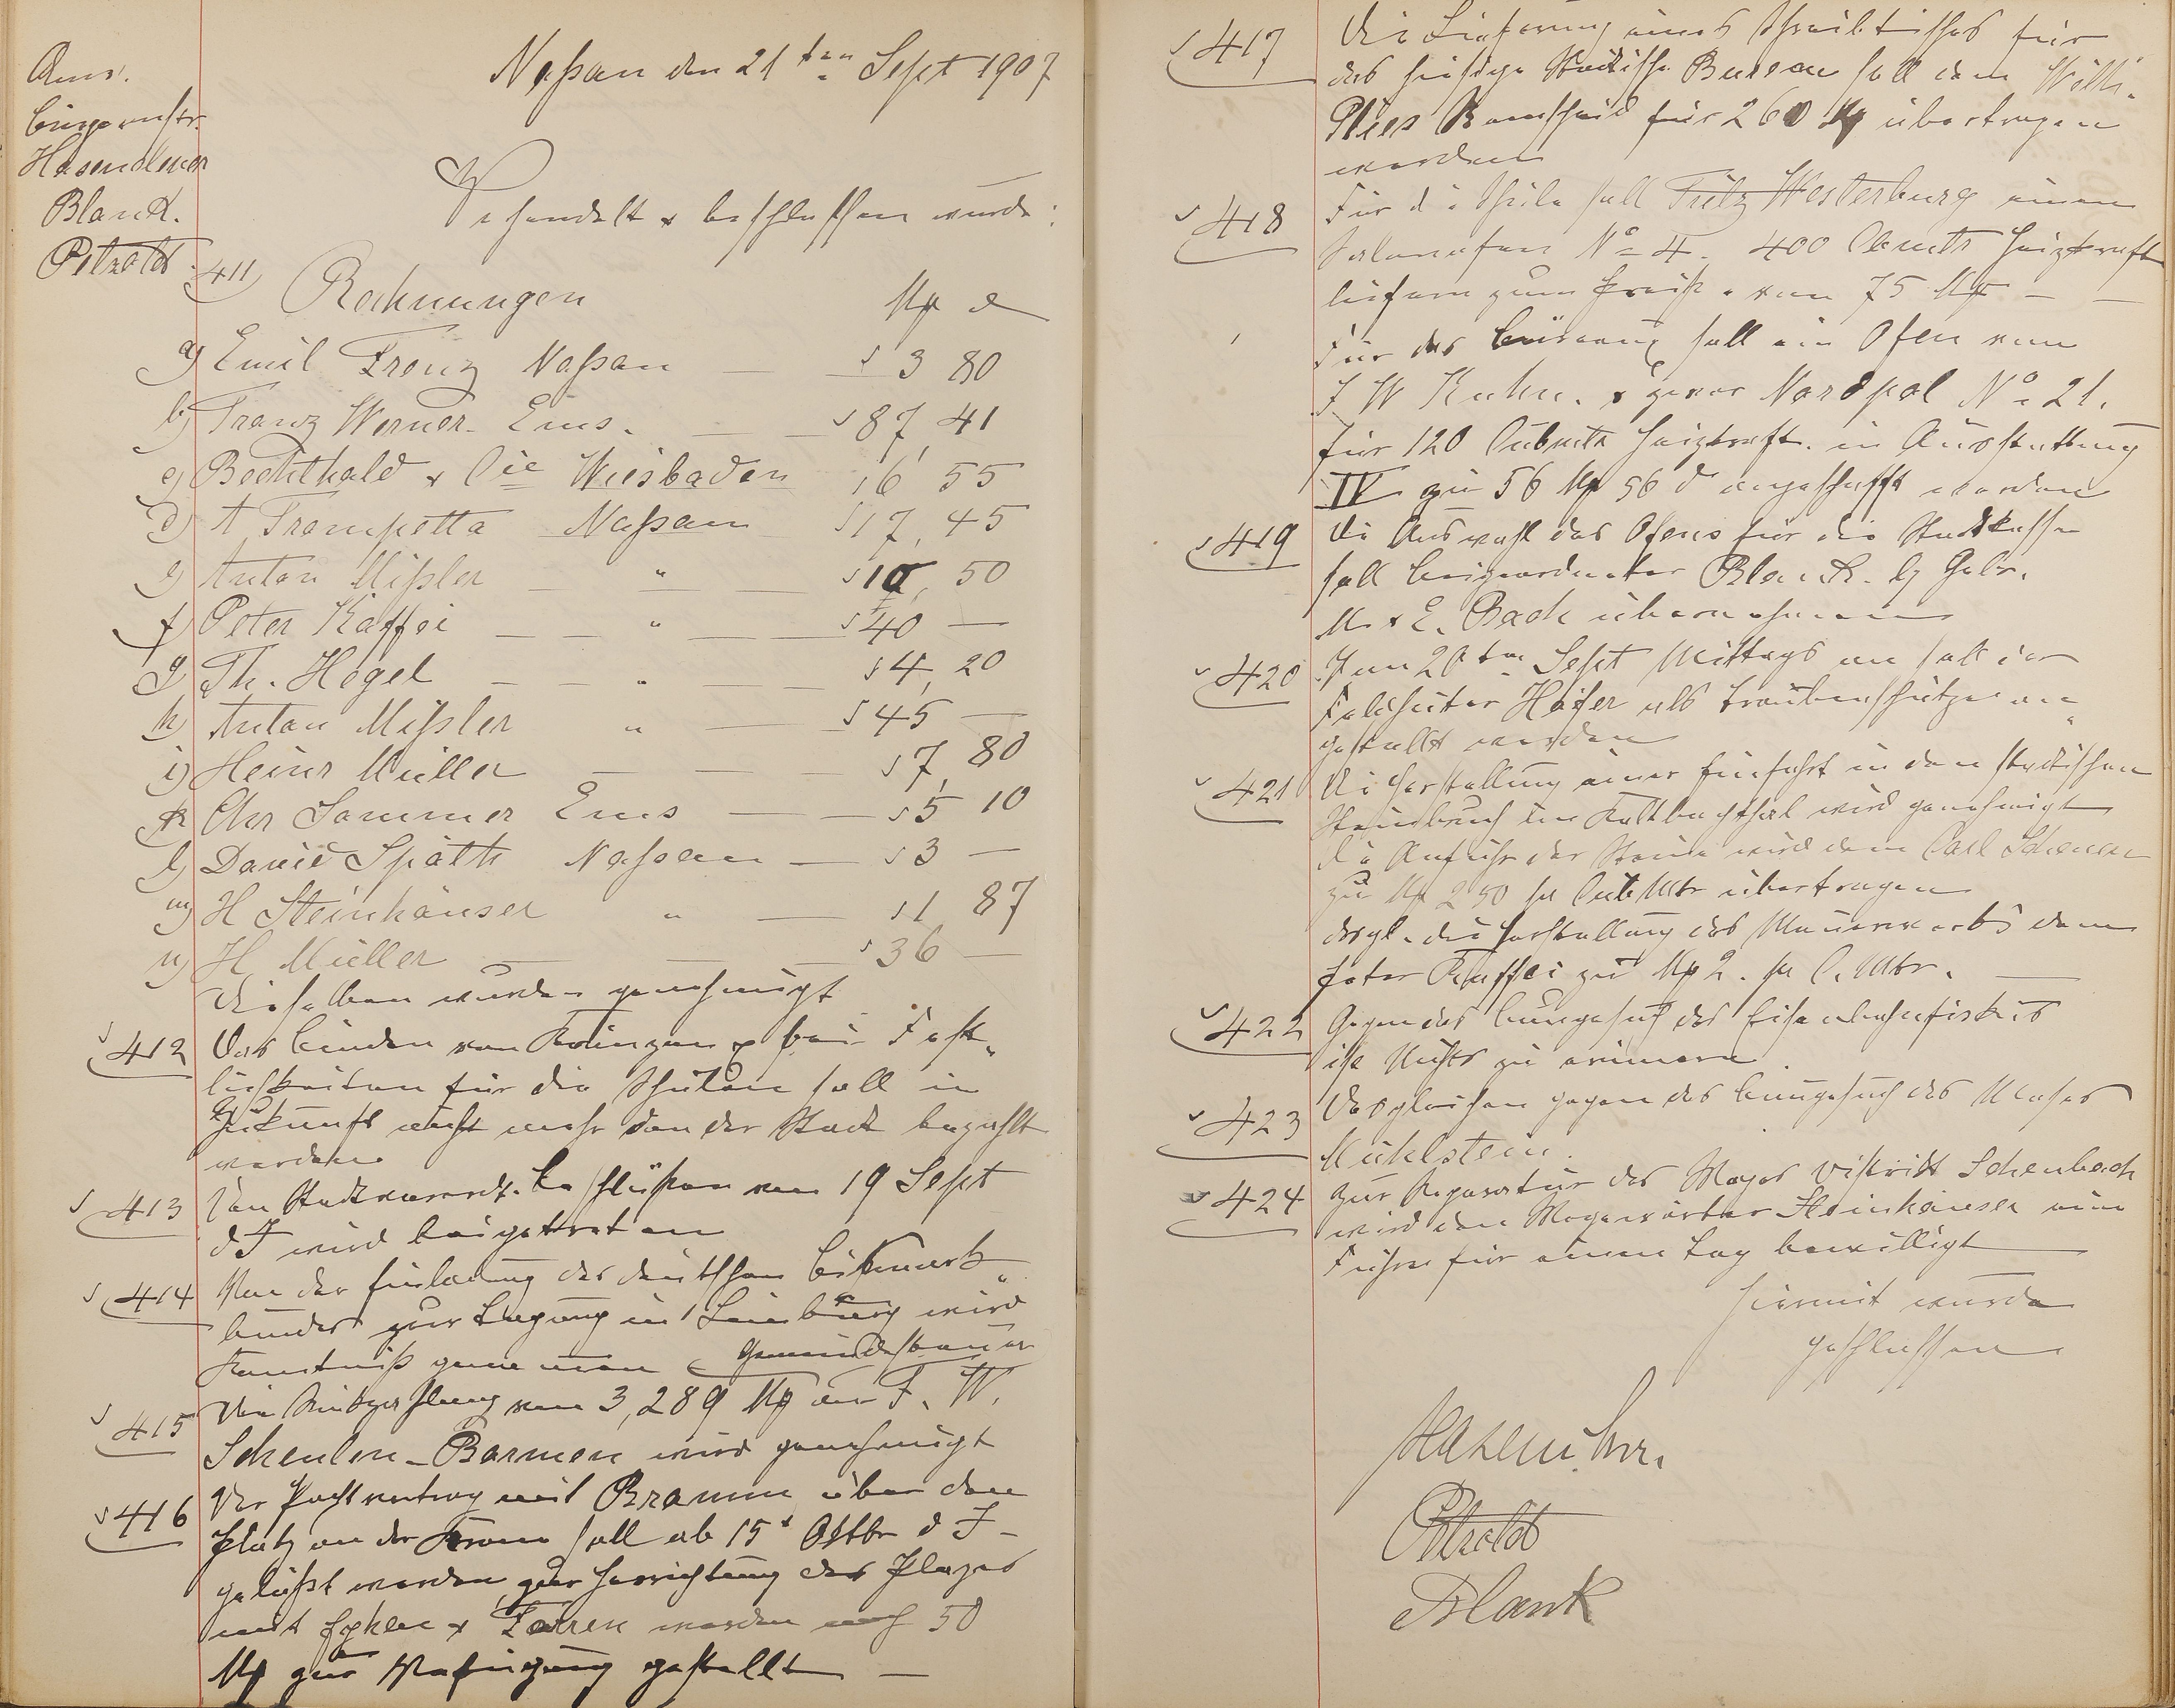 Anw.
Bürgermstr.
Hasenclever
Blank.
Petzoldt
Naßau den 21ten Sept 1907
Verhandelt & beschlossen wurde:
411) Rechnungen Mk ₰
a) Emil Franz Naßau — 3 80
b) Franz Werner Ems. — 87, 41
c) Bechthold & Cie Wiesbaden 16 55
d) A Trompetta Naßau 17, 45
e) Anton Mißler " — 10, 50
f) Peter Kaffei — " — 40 —
g) Th. Hegel — " — 4, 20
h) Anton Mißler " — 45 —
i) Heinr Müller — 7, 80
k) Chr Sommer Ems — 5 10
l) David Späth Naßau — 3 —
m) H Steinhäuser " — 1 87
n) H Müller — 36 —
Dieselben wurden genehmigt
412 Das Binden von Kränzen p bei Fest-
lichkeiten für die Schulen soll in
Zukunft nicht mehr von der Stadt bezahlt
werden
413 Den Stadtverordt. Beschlüßen vom 19 Sept
d J wird beigetreten
414 Von der Einladung des deutschen Bismark-
bundes zur Tagung in Limburg wird
Kenntniß genommen
Gemeindesteuer
415 Die Rückzahlung von 3,289 Mk an F. W.
Scheulen-Barmen wird genehmigt
416 Der Pachtvertrag mit Bramm über den
Platz an der Krone soll ab 15t Oktbr d J-
gelößt werden zur Herrichtung des Plazes
mit & werden noch 50
Mk zur Verfügung gestellt —
417 Die Lieferung eines Schreibtisches für
das hiesige Städtische Bureau soll dem Wilh.
Plies Bomscheid für 260 Mk übertragen
werden
418 Für die Schule soll Fritz Westerburg einen
No 4. 400 Cbmtr Heizkraft
liefern zum Preiße von 75 Mk — —
Für das Büreau soll ein Ofen von
J W Kuhn. & zwar Nordpol No 21.
für 120 Cubmtr Heizkraft. in Ausstattung
IV zu 56 Mk 56 ₰ angeschafft werden
419 Die Auswahl des Ofens für die Stadtkasse
soll Beigeordneter Blank. bei Gebr.
M. & E. Bach übernehmen
420 Vom 26ten Sept Mittags an soll der
Feldhüter Hofer als Traubenschütze an-
gestellt werden
421 Die Herstellung einer Einfahrt in den städtischen
Steinbruch im Kaltbachthal wird genehmigt
die Anfuhr der Steine wird dem Carl Schenen
zu Mk 2 50 pr CubMtr übertragen
desgl. die Herstellung des Mauerwerks dem
Peter Kaffei zu Mk 2. pr C. Mtr. —
422 Gegen das Baugesuch des Eisenbahnfiskus
ist Nichts zu erinnern.
423 Desgleichen gegen das Baugesuch des Moses
Mühlstein.
424 Zur Reparatur des Weges Distrikt Schenbach
wird dem Wegewärter Steinhäuser eine
Fuhre für einen Tag bewilligt —
Hiermit wurde
geschlossen
Hasenclever.
Petzoldt
Blank